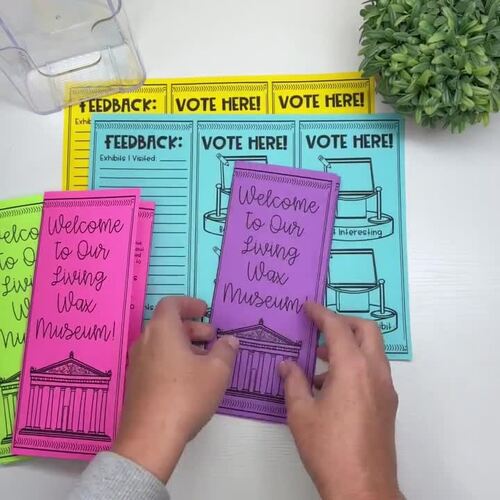 FEEDBACK:
VOTE HERE!
VOTE HERE!
FEEDBACK:
Exhibits I Visited:
VOTE HERE!
VOTE HERE!
Interesting
Welcome
to Our
Living
Wax
Museum!
Welcome
to Our
Living
Wax
Museum!